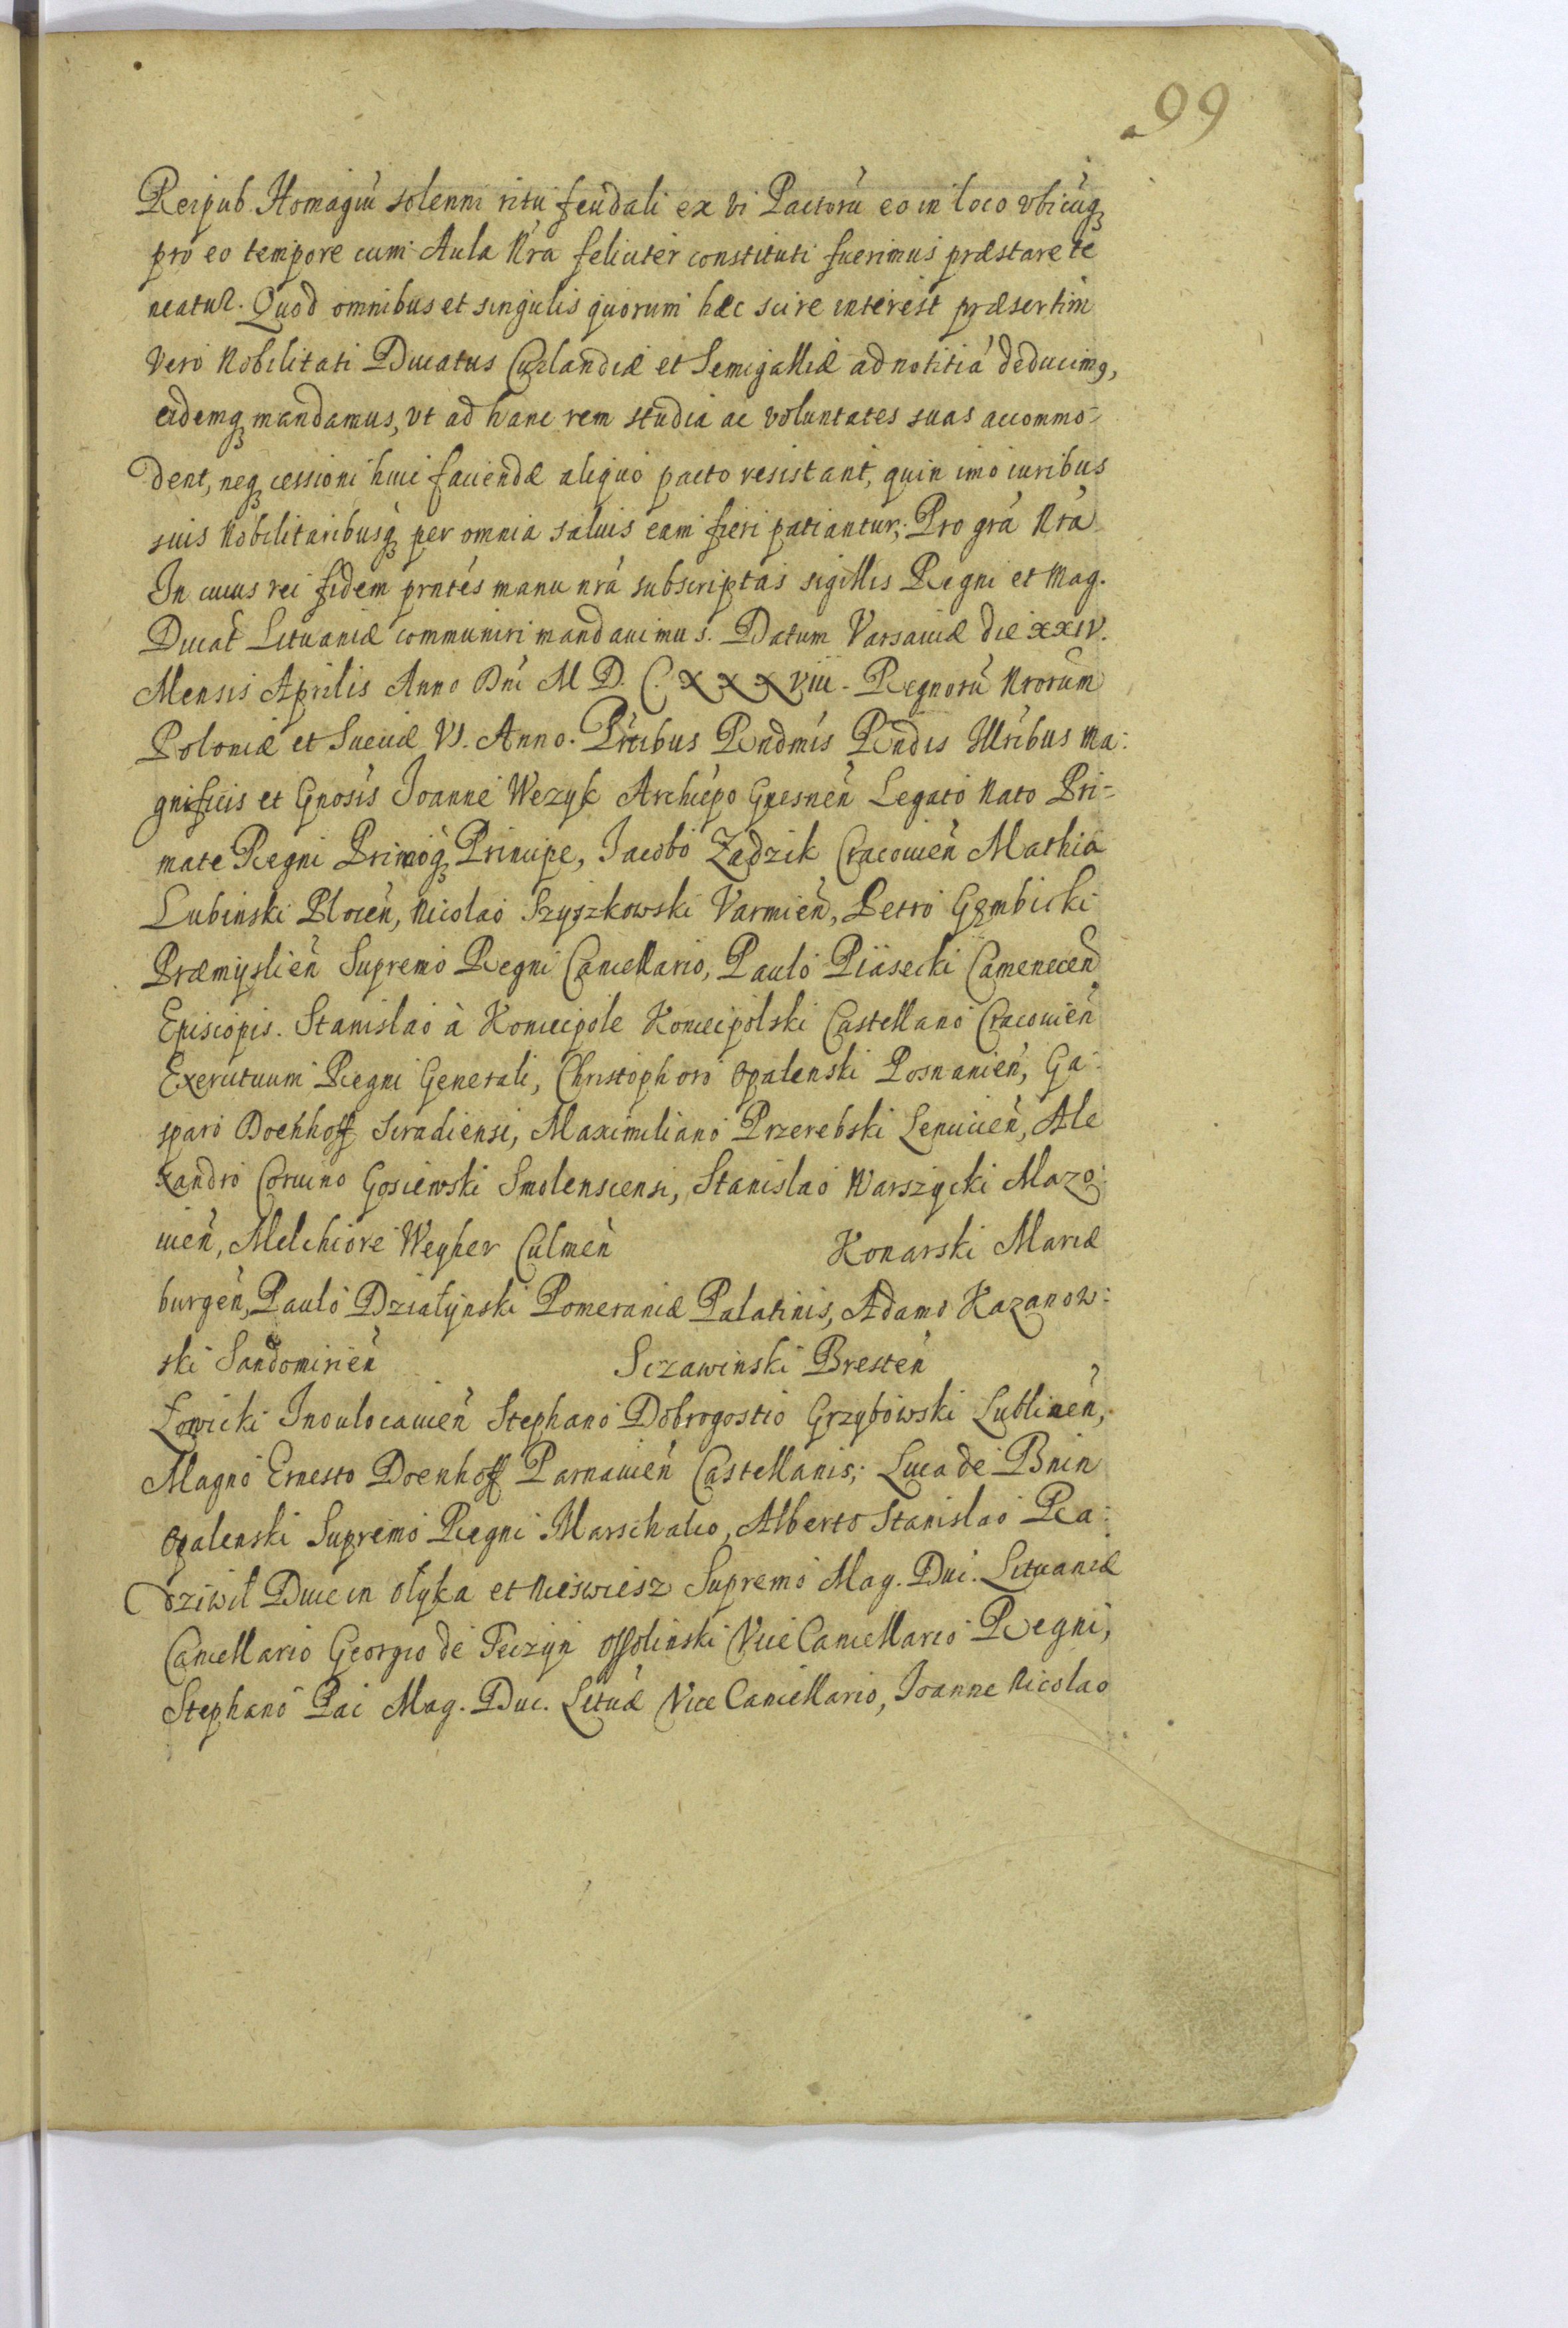 99
Reipub. Homagiũ solenni ritu feudali ex vi Pactorũ eo in loco vbicũq
pro eo tempore cum Aula Nrã feliciter constituti fuerimus præstare te
neatur. Quod omnibus et singulis quorum hæc scire interest præsertim
vero Nobilitati Ducatus Curlandiæ et Semigalliæ ad notitiã deducimꝰ,
eidemq mandamus, vt ad hanc rem studia ac voluntates suas accommo-
dent, neq cessioni huic faciendæ aliquo pacto resistant, quin imo iuribus
suis Nobilitaribusq per omnia saluis eam fieri patiantur; Pro grã Nrã
In cuius rei fidem prntes manu nrã subscriptas sigillis Regni et Mag.
Ducat Lituaniæ communiri mandauimus. Datum Varsauiæ die XXIV.
Mensis Aprilis Anno Dni M D. C. X X X viii. Regnorũ Nrorum
Poloniæ et Sueciæ VI. Anno. Prẽtibus Rndmis Rndis Illribus Ma:
gnificis et Gnosis Joanne Wezyk Archiepo Gnesneñ Legato Nato Pri-
mate Regni Primoq Principe, Jacobo Zadzik Cracouieñ Mathia
Lubinski Ploceñ, Nicolao Szyszkowski Varmieñ, Petro Gembicki
Præmyslieñ Supremo Regni Cancellario, Paulo Piasecki Cameneceñ
Episcopis. Stanislao à Koniecpole Koniecpolski Castellano Cracouieñ
Exercituum Regni Generali, Christophoro Opalenski Posnanieñ, Ga:
sparo Doenhoff Siradiensi, Maximiliano Przerebski Lenicieñ, Ale
xandro Coruino Gosiewski Smolenscensi, Stanislao Warszycki Mazo:
uieñ, Melchiore Weyher Culmeñ Konarski Mariæ
burgeñ, Paulo Dziatynski Pomeraniæ Palatinis, Adamo Kazanow:
ski Sandomirieñ Sczawinski Bresteñ
Łowicki Inoulocauieñ Stephano Dobrogostio Grzybowski Lublineñ,
Magno Ernesto Doenhoff Parnauieñ Castellanis; Luca de Bnin
Opalenski Supremo Regni Marschalco, Alberto Stanislao Ra:
dziwil Duce in Olyka et Nieswiesz Supremo Mag. Duc. Lituaniæ
Cancellario Georgio de Teczyn Ossolinski Vice Cancellario Regni,
Stephano Pac Mag. Duc. Lituæ Vice Cancellario, Joanne Nicolao